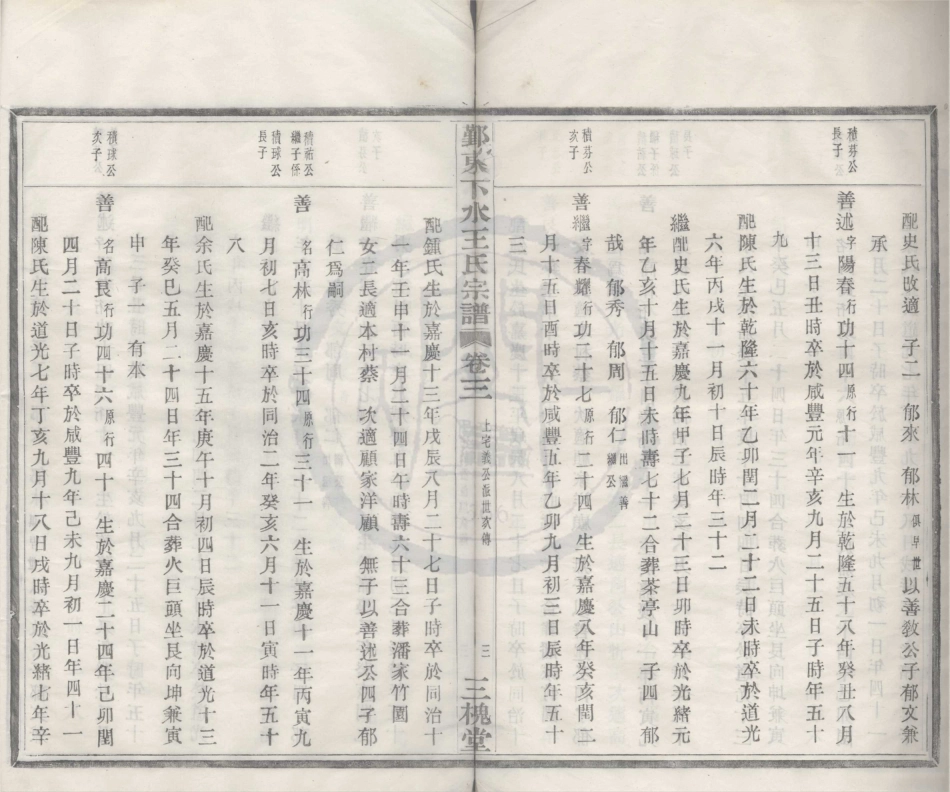 配史氏改適 子二 郁來 郁林俱早世以善教公子郁文兼
承
積芬公
長子
善述字陽春行功十四原行十一 生於乾隆五十八年癸丑八月
十三日丑時卒於咸豐元年辛亥九月二十五日子時年五十
九
配陳氏生於乾隆六十年乙卯閏二月二十二日未時卒於道光
六年丙戌十一月初十日辰時年三十二
繼配史氏生於嘉慶九年甲子七月二十三日卯時卒於光緒元
年乙亥十月十五日未時壽七十二合葬茶亭山 子四 郁
哉 郁秀 郁周 郁仁出繼善繼公
積芬公
次子
善繼字春耀行功二十七原行二十四 生於嘉慶八年癸亥閏二
月十五日酉時卒於咸豐五年乙卯九月初三日辰時年五十
三
鄞東下水王氏宗譜 卷三 上宅 三 三槐堂
配鍾氏生於嘉慶十三年戊辰八月二十七日子時卒於同治十
一年壬申十一月二十四日午時壽六十三合葬潘家竹園
女二長適本村蔡 次適顧家洋顧 無子以善述公四子郁
仁為嗣
積祐公
繼子係
積球公
長子
善 名高林行功三十四原行三十一 生於嘉慶十一年丙寅九
月初七日亥時卒於同治二年癸亥六月十一日寅時年五十
八
配余氏生於嘉慶十五年庚午十月初四日辰時卒於道光十三
年癸巳五月二十四日年三十四合葬火巨頭坐艮向坤兼寅
申 子一 有本
積球公
次子
善 名高良行功四十六原行四十 生於嘉慶二十四年己卯閏
四月二十日子時卒於咸豐九年己未九月初一日年四十一
配陳氏生於道光七年丁亥九月十八日戌時卒於光緒七年辛